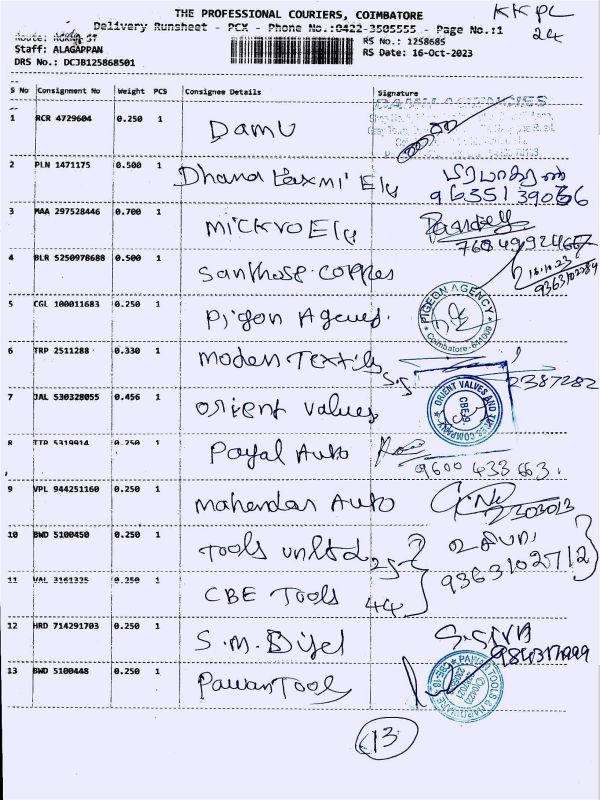 THE PROFESSIONAL COURIERS, COIMBATORE
KKPL
24
Delivery Runsheet - PCX - Phone No.:0422-3505555 - Page No.:1
Route: ST
RS No.: 1258685
Staff: ALAGAPPAN
RS Date: 16-Oct-2023
DRS No.: DCJB125868501
S No Consignment No Weight PCS Consignee Details Signature
1 RCR 4729604 0.250 1 Damu
2 PLN 1471175 0.500 1 Dhana Laxmi Ely
3 MAA 297528446 0.700 1 Mickro Ely
4 BLR 5250978688 0.500 1 Santhose
16.10.23
5 CGL 100011683 0.250 1 Pigon
PIGEON AGENCY
Coimbatore-641009
6 TRP 2511288 0.330 1 Moden Textils
2387282
7 JAL 530328055 0.456 1 Orient Values
ORIENT VALVES AND TUBES COMPANY
CBE-9.
8 TTP 5319914 0.250 1 Payal Auto
9600 433 663.
9 VPL 944251160 0.250 1 Mahendar Auto
2303013
10 BWD 5100450 0.250 1 Tools unltd 25
9363102712
11 VAL 3161325 0.250 1 CBE Tools 44
12 HRD 714291703 0.250 1 S.M. S.SIVA
13 BWD 5100448 0.250 1 Pawan Tools
PAWAN TOOLS & HARDWARE
CBE-18
13